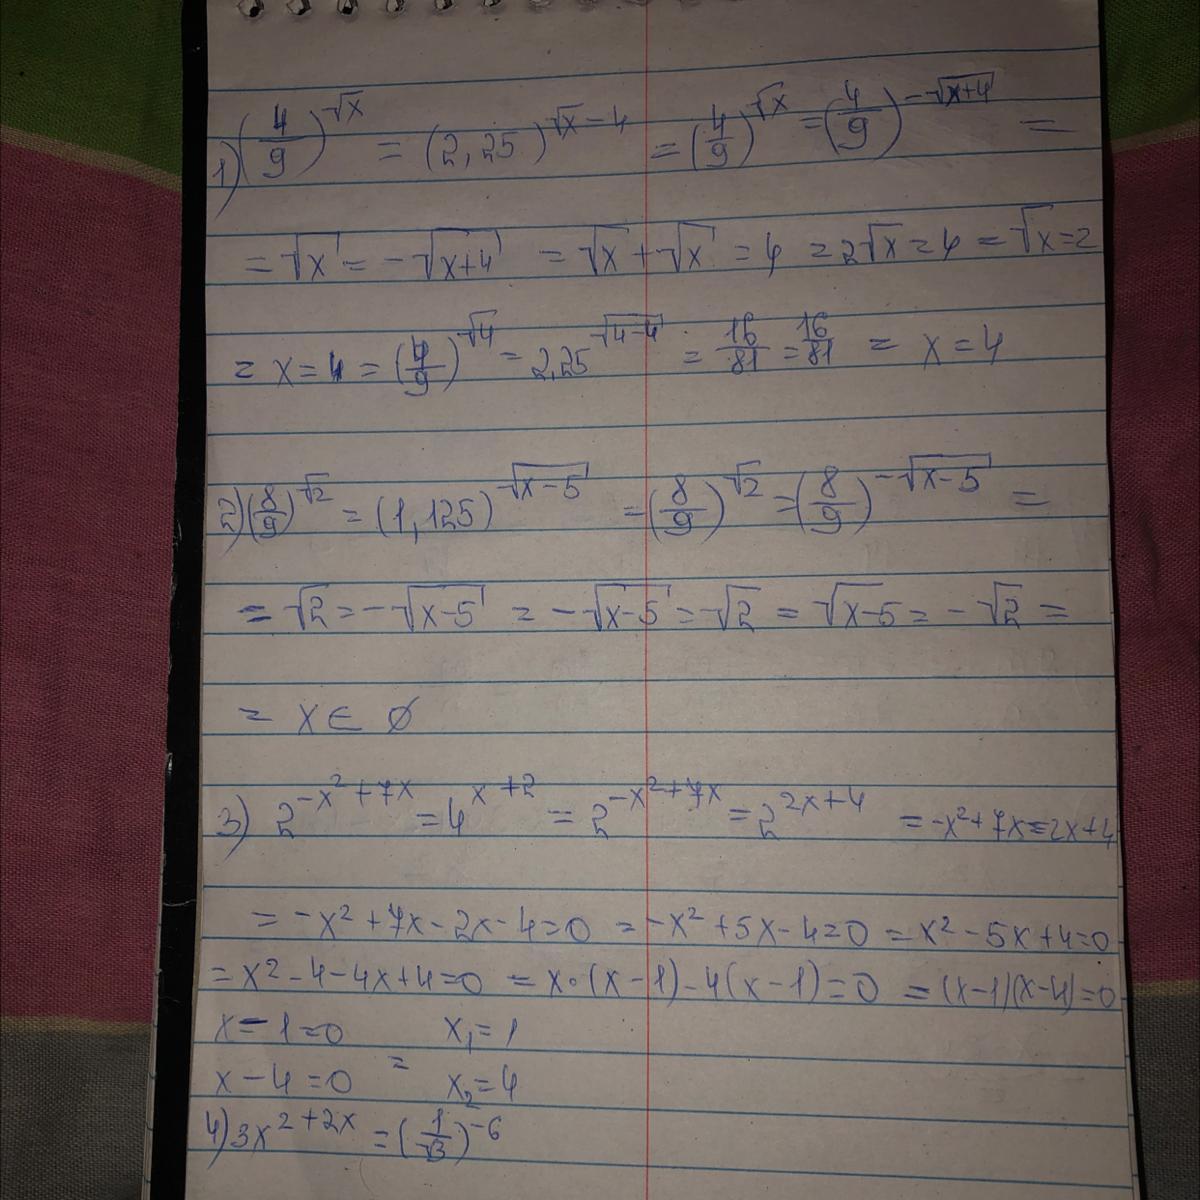 1) (4/9)^√x = (2,25)^√x-4 = (4/9)^√x = (4/9)^-√x+4 =
= √x = -√x+4 = √x + √x = 4 = 2√x = 4 = √x = 2
= x = 4 = (4/9)^√4 = 2,25^√4-4 = 16/81 = 16/81 = x = 4
2) (8/9)^√2 = (1,125)^√x-5 = (8/9)^√2 = (8/9)^-√x-5 =
= √2 = -√x-5 = -√x-5 = √2 = √x-5 = -√2 =
= x ∈ ∅
3) 2^-x²+7x = 4^x+2 = 2^-x²+7x = 2^2x+4 = -x²+7x=2x+4
= -x²+7x-2x-4=0 = -x²+5x-4=0 = x²-5x+4=0
= x²-4-4x+4=0 = x·(x-1)-4(x-1)=0 = (x-1)(x-4)=0
x-1=0 x₁=1
x-4=0 = x₂=4
4) 3x^2+2x = (1/√3)^-6